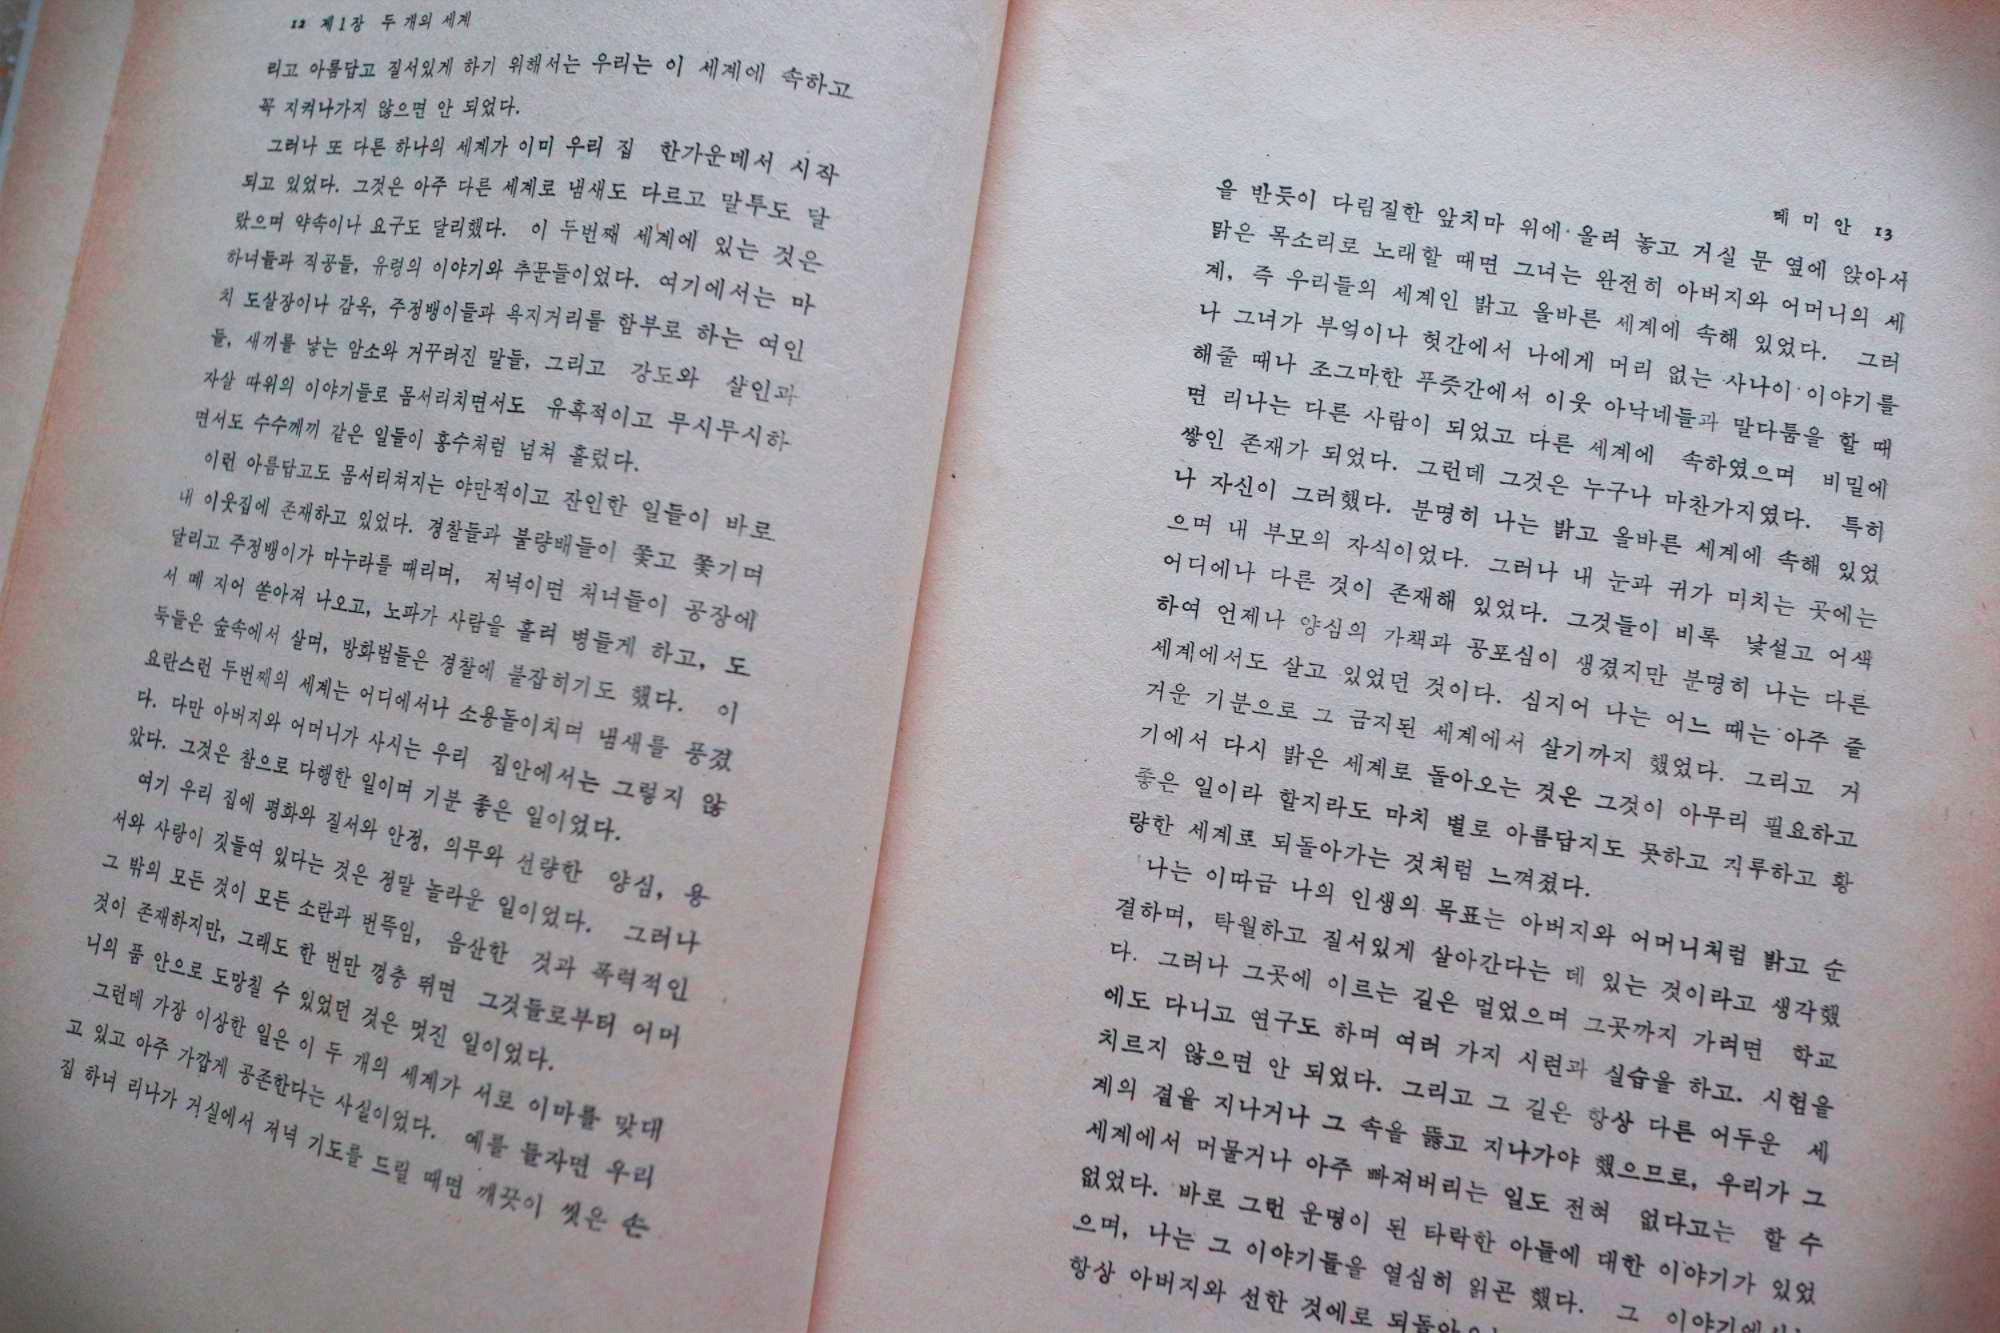 12 제1장 두 개의 세계
리고 아름답고 질서있게 하기 위해서는 우리는 이 세계에 속하고
꼭 지켜나가지 않으면 안 되었다.
그러나 또 다른 하나의 세계가 이미 우리 집 한가운데서 시작
되고 있었다. 그것은 아주 다른 세계로 냄새도 다르고 말투도 달
랐으며 약속이나 요구도 달리했다. 이 두번째 세계에 있는 것은
하녀들과 직공들, 유령의 이야기와 추문들이었다. 여기에서는 마
치 도살장이나 감옥, 주정뱅이들과 욕지거리를 함부로 하는 여인
들, 새끼를 낳는 암소와 거꾸러진 말들, 그리고 강도와 살인과
자살 따위의 이야기들로 몸서리치면서도 유혹적이고 무시무시하
면서도 수수께끼 같은 일들이 홍수처럼 넘쳐 흘렀다.
이런 아름답고도 몸서리쳐지는 야만적이고 잔인한 일들이 바로
내 이웃집에 존재하고 있었다. 경찰들과 불량배들이 쫓고 쫓기며
달리고 주정뱅이가 마누라를 때리며, 저녁이면 처녀들이 공장에
서 떼 지어 쏟아져 나오고, 노파가 사람을 홀려 병들게 하고, 도
둑들은 숲속에서 살며, 방화범들은 경찰에 붙잡히기도 했다. 이
요란스런 두번째의 세계는 어디에서나 소용돌이치며 냄새를 풍겼
다. 다만 아버지와 어머니가 사시는 우리 집안에서는 그렇지 않
았다. 그것은 참으로 다행한 일이며 기분 좋은 일이었다.
여기 우리 집에 평화와 질서와 안정, 의무와 선량한 양심, 용
서와 사랑이 깃들여 있다는 것은 정말 놀라운 일이었다. 그러나
그 밖의 모든 것이 모든 소란과 번뜩임, 음산한 것과 폭력적인
것이 존재하지만, 그래도 한 번만 껑충 뛰면 그것들로부터 어머
니의 품 안으로 도망칠 수 있었던 것은 멋진 일이었다.
그런데 가장 이상한 일은 이 두 개의 세계가 서로 이마를 맞대
고 있고 아주 가깝게 공존한다는 사실이었다. 예를 들자면 우리
집 하녀 리나가 거실에서 저녁 기도를 드릴 때면 깨끗이 씻은 손
데 미 안 13
을 반듯이 다림질한 앞치마 위에 올려 놓고 거실 문 옆에 앉아서
맑은 목소리로 노래할 때면 그녀는 완전히 아버지와 어머니의 세
계, 즉 우리들의 세계인 밝고 올바른 세계에 속해 있었다. 그러
나 그녀가 부엌이나 헛간에서 나에게 머리 없는 사나이 이야기를
해줄 때나 조그마한 푸줏간에서 이웃 아낙네들과 말다툼을 할 때
면 리나는 다른 사람이 되었고 다른 세계에 속하였으며 비밀에
쌓인 존재가 되었다. 그런데 그것은 누구나 마찬가지였다. 특히
나 자신이 그러했다. 분명히 나는 밝고 올바른 세계에 속해 있었
으며 내 부모의 자식이었다. 그러나 내 눈과 귀가 미치는 곳에는
어디에나 다른 것이 존재해 있었다. 그것들이 비록 낯설고 어색
하여 언제나 양심의 가책과 공포심이 생겼지만 분명히 나는 다른
세계에서도 살고 있었던 것이다. 심지어 나는 어느 때는 아주 즐
거운 기분으로 그 금지된 세계에서 살기까지 했었다. 그리고 거
기에서 다시 밝은 세계로 돌아오는 것은 그것이 아무리 필요하고
좋은 일이라 할지라도 마치 별로 아름답지도 못하고 지루하고 황
량한 세계로 되돌아가는 것처럼 느껴졌다.
나는 이따금 나의 인생의 목표는 아버지와 어머니처럼 밝고 순
결하며, 탁월하고 질서있게 살아간다는 데 있는 것이라고 생각했
다. 그러나 그곳에 이르는 길은 멀었으며 그곳까지 가려면 학교
에도 다니고 연구도 하며 여러 가지 시련과 실습을 하고. 시험을
치르지 않으면 안 되었다. 그리고 그 길은 항상 다른 어두운 세
계의 곁을 지나거나 그 속을 뚫고 지나가야 했으므로, 우리가 그
세계에서 머물거나 아주 빠져버리는 일도 전혀 없다고는 할 수
없었다. 바로 그런 운명이 된 타락한 아들에 대한 이야기가 있었
으며, 나는 그 이야기들을 열심히 읽곤 했다. 그 이야기에서는
항상 아버지와 선한 것에로 되돌아